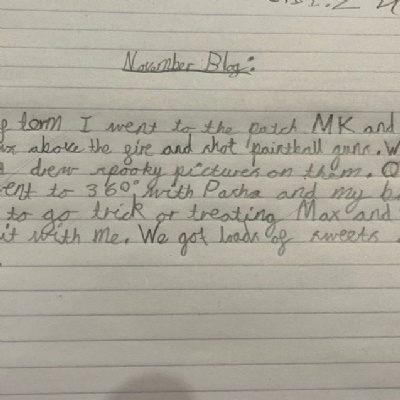 Novomber Blog:
term I went to the patch MK and
above the fire and shot paintball guns. W
drew spooky pictures on them. O
ent to 360° with Pacha and my b
to go trick or treating Max and
it with me. We got loads of sweets